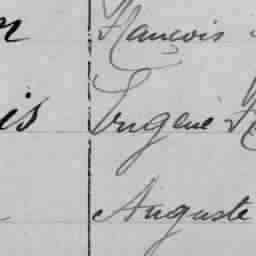 François
is Eugène
Auguste